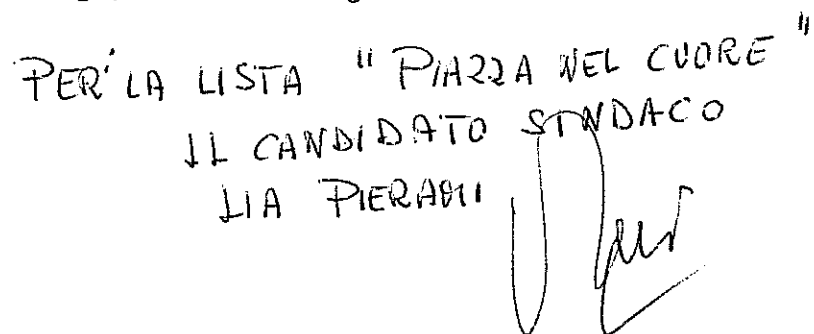 PER' LA LISTA "PIAZZA NEL CUORE"
IL CANDIDATO SINDACO
LIA